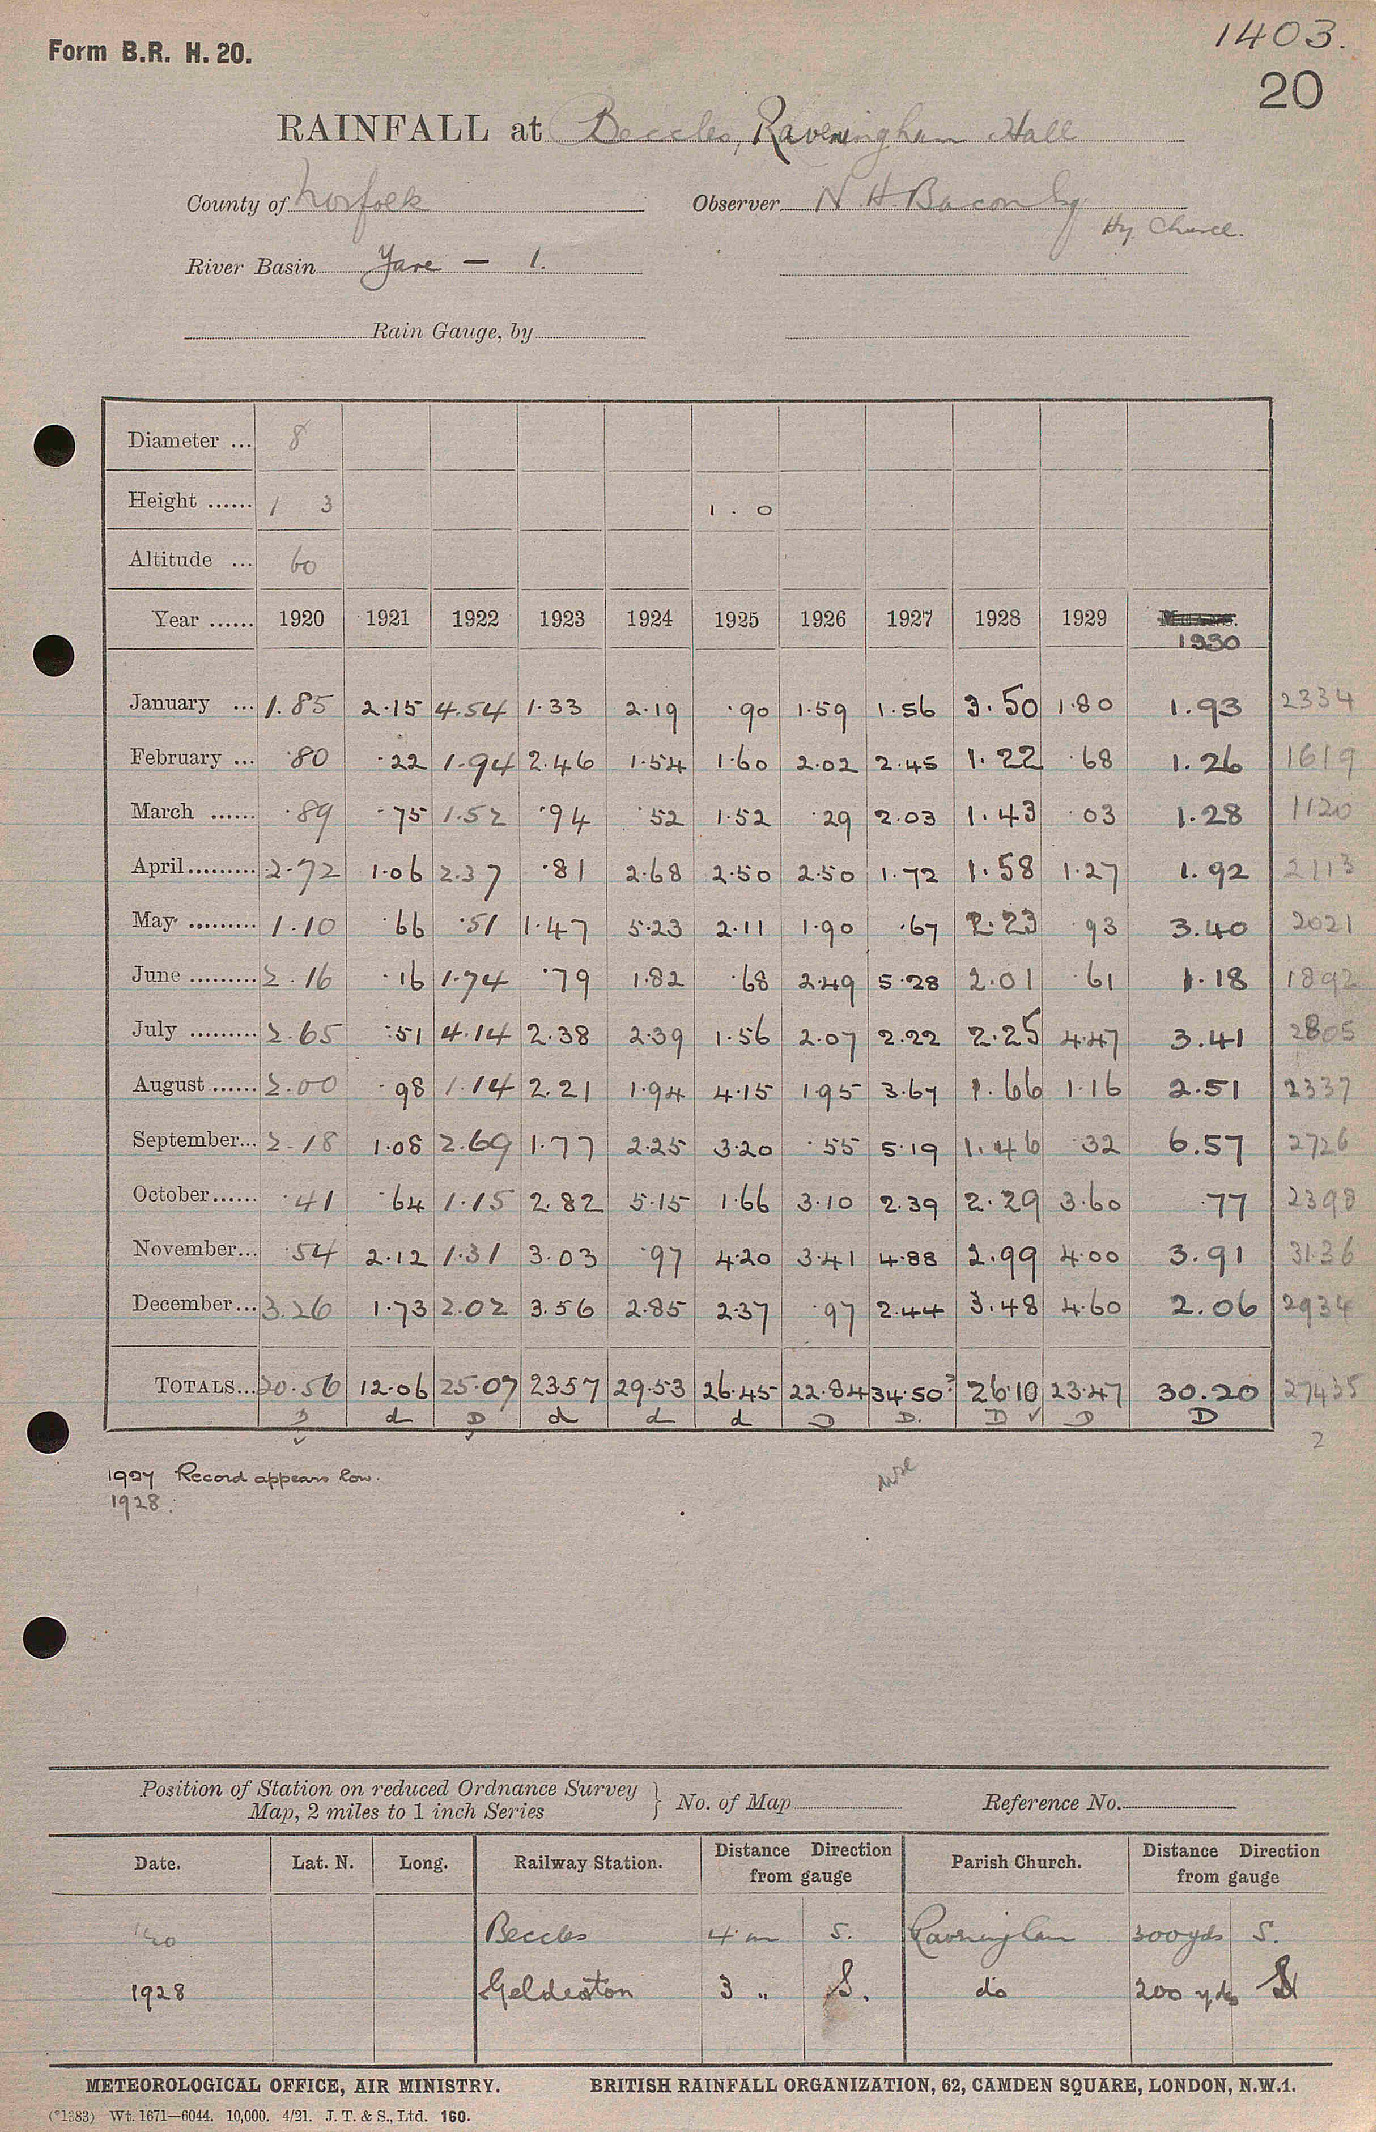 1403.
Form B.R. H. 20.
20
RAINFALL at Beccles, Raveningham Hall
County of Norfolk Observer N. H. Bacon Esq
Hy. Church.
River Basin Yare — 1.
Rain Gauge, by
Diameter ... 8
Height ...... 1 3 1 . 0
Altitude ... 60
Year ...... 1920 1921 1922 1923 1924 1925 1926 1927 1928 1929 1930
January ... 1.85 2.15 4.54 1.33 2.19 .90 1.59 1.56 3.50 1.80 1.93 2334
February ... .80 .22 1.94 2.46 1.54 1.60 2.02 2.45 1.22 .68 1.26 1619
March ...... .89 .75 1.52 .94 .52 1.52 .29 2.03 1.43 .03 1.28 1120
April......... 2.72 1.06 2.37 .81 2.68 2.50 2.50 1.72 1.58 1.27 1.92 2113
May ......... 1.10 .66 .51 1.47 5.23 2.11 1.90 .67 2.23 .93 3.40 2021
June ......... 2.16 .16 1.74 .79 1.82 .68 2.49 5.28 2.01 .61 1.18 1892
July ......... 2.65 .51 4.14 2.38 2.39 1.56 2.07 2.22 2.25 4.47 3.41 2805
August ...... 2.00 .98 1.14 2.21 1.94 4.15 1.95 3.67 1.66 1.16 2.51 2337
September... 2.18 1.08 2.69 1.77 2.25 3.20 .55 5.19 1.46 .32 6.57 2726
October...... .41 .64 1.15 2.82 5.15 1.66 3.10 2.39 2.29 3.60 .77 2398
November... .54 2.12 1.31 3.03 .97 4.20 3.41 4.88 2.99 4.00 3.91 3136
December... 3.26 1.73 2.02 3.56 2.85 2.37 .97 2.44 3.48 4.60 2.06 2934
TOTALS... 20.56 12.06 25.07 23.57 29.53 26.45 22.84 34.50? 26.10 23.47 30.20 27435
D d D d d d D D. D ✓ D D 2
1927 Record appears low. use
1928.
Position of Station on reduced Ordnance Survey
Map, 2 miles to 1 inch Series } No. of Map Reference No.
Date. Lat. N. Long. Railway Station. Distance Direction from gauge Parish Church. Distance Direction from gauge
Beccles 4 m S. Raveningham 300 yds S.
1928 Geldeston 3 " S. do 200 yds
METEOROLOGICAL OFFICE, AIR MINISTRY. BRITISH RAINFALL ORGANIZATION, 62, CAMDEN SQUARE, LONDON, N.W.1.
(*1383) Wt. 1671—6044. 10,000. 4/21. J. T. & S., Ltd. 160.